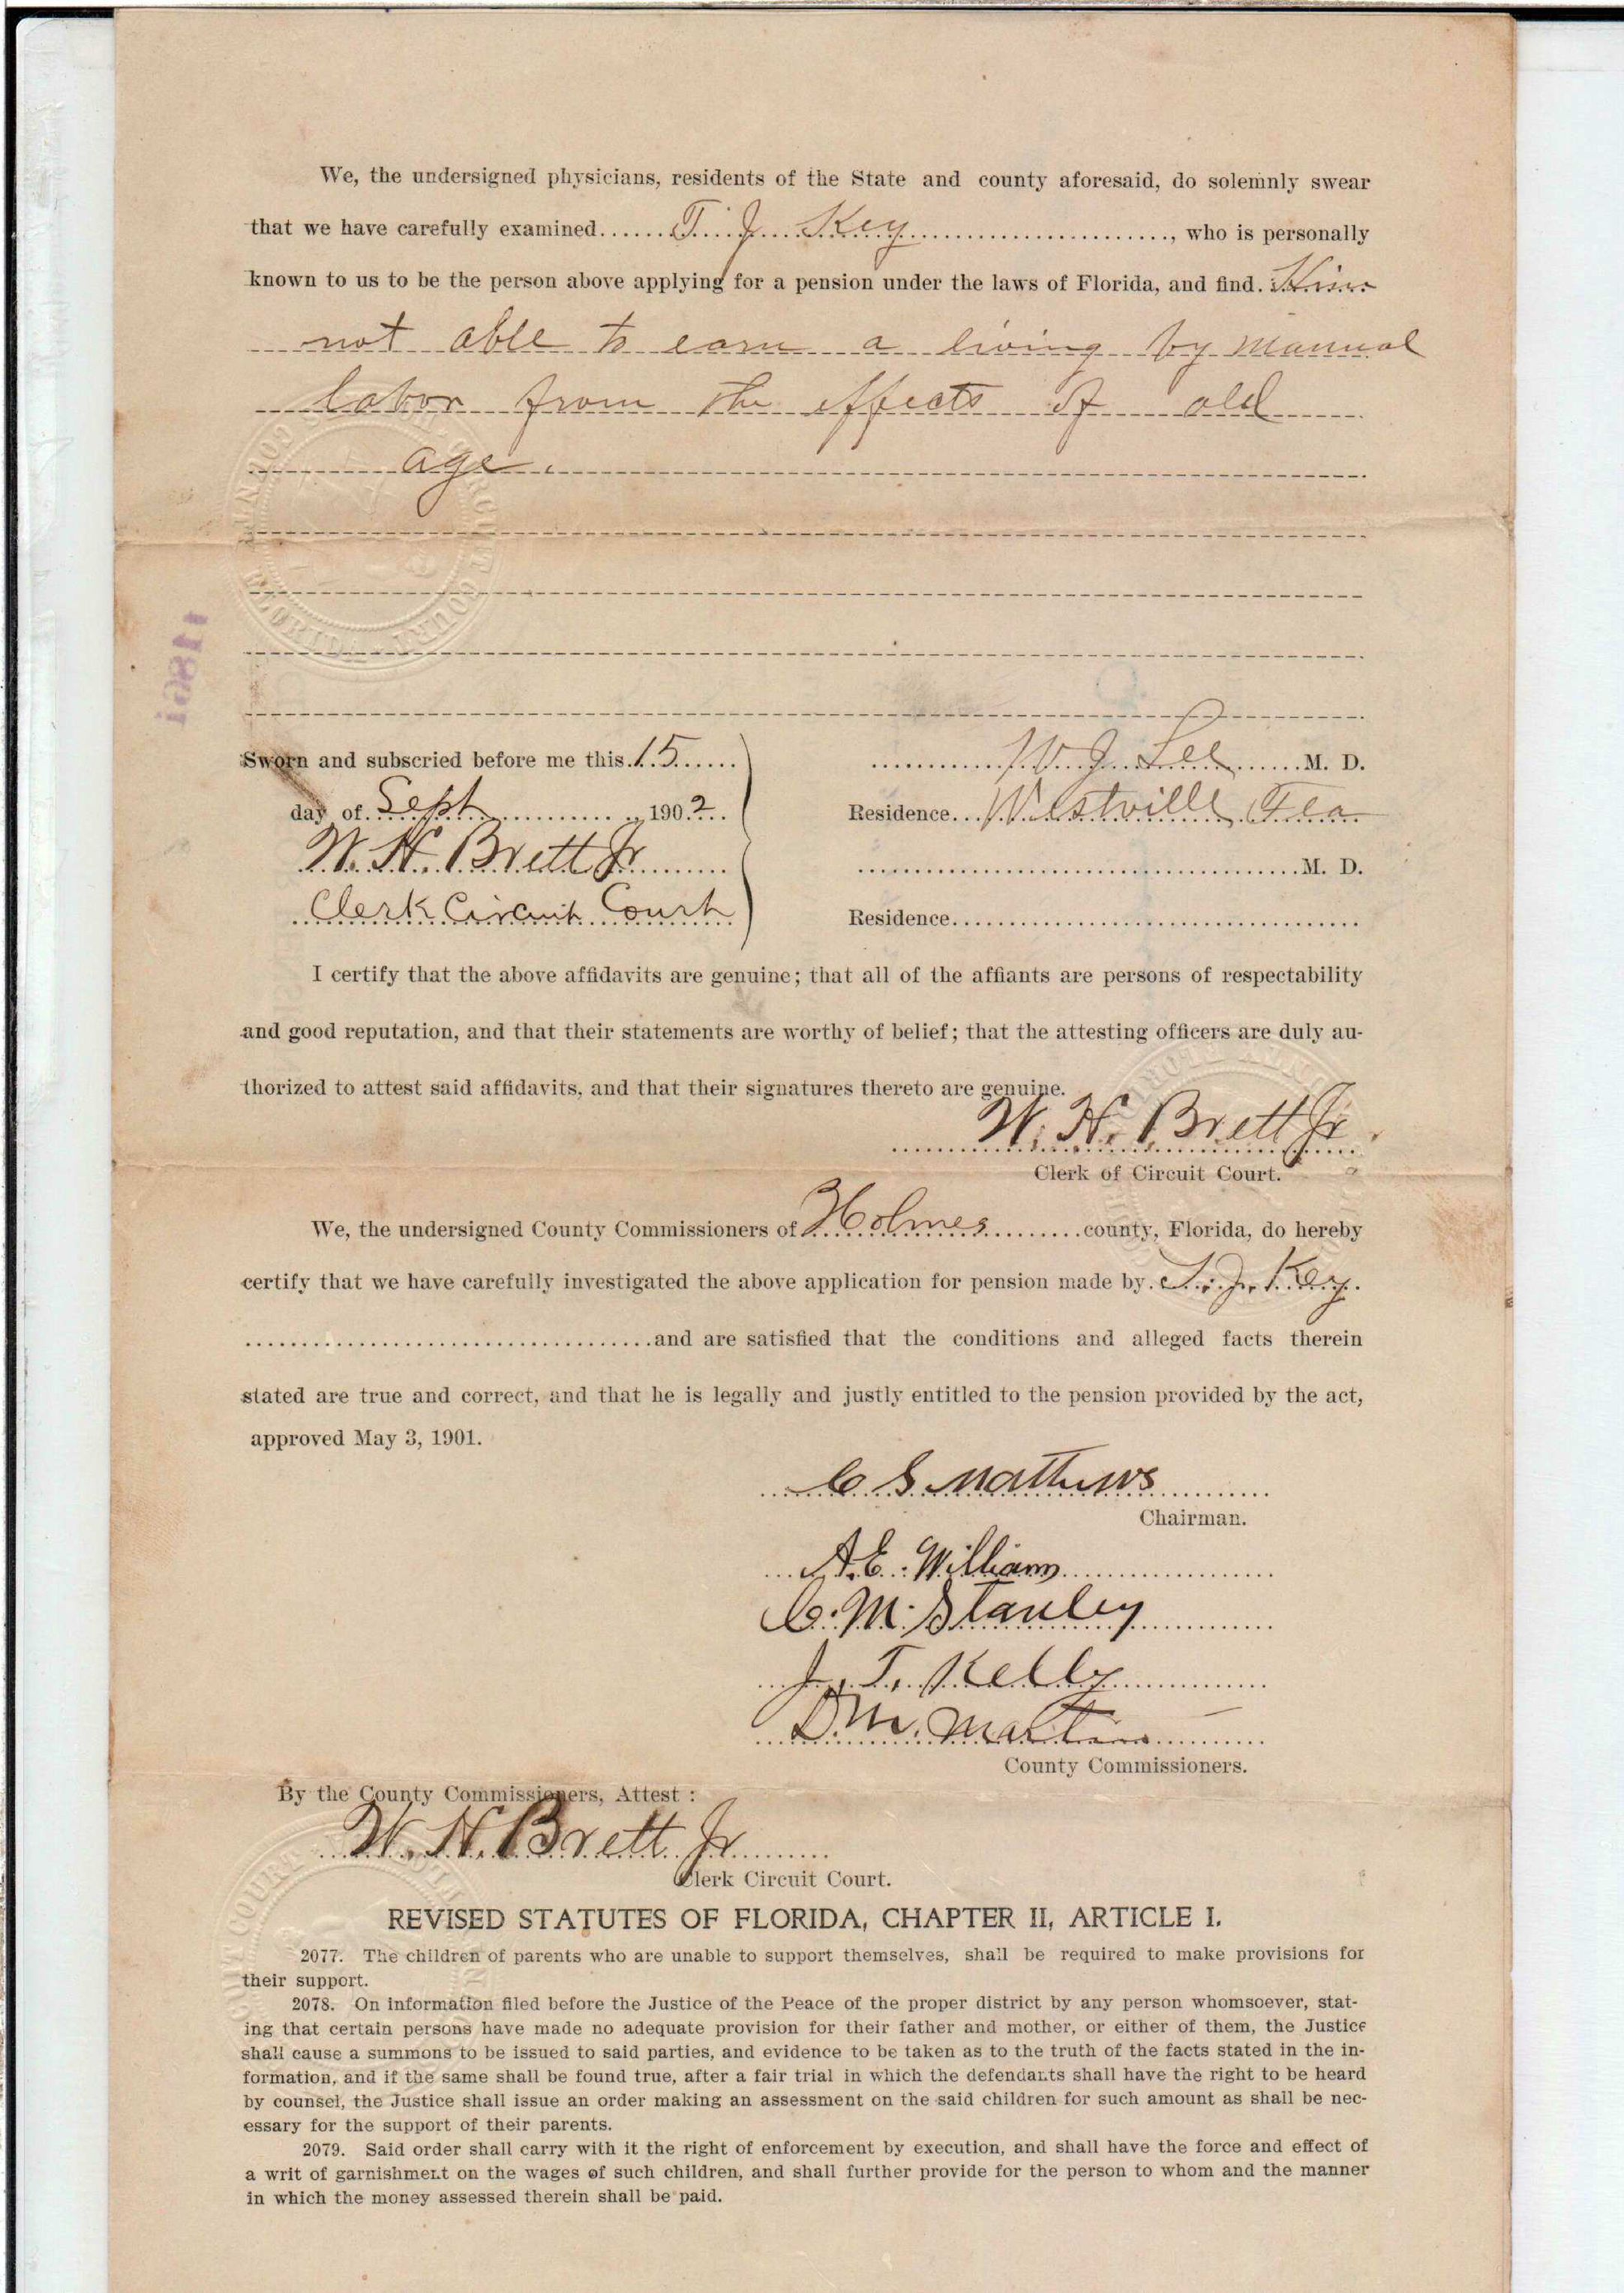 We, the undersigned physicians, residents of the State and county aforesaid, do solemnly swear
that we have carefully examined......T. J. Key......, who is personally
known to us to be the person above applying for a pension under the laws of Florida, and find. Him
not able to earn a living by manual
labor from the effects of old
age.
Sworn and subscried before me this 15
day of Sept 1902
W. H. Brett Jr
Clerk Circuit Court
W. J. Lee M. D.
Residence Westville Fla
M. D.
Residence
I certify that the above affidavits are genuine; that all of the affiants are persons of respectability
and good reputation, and that their statements are worthy of belief; that the attesting officers are duly au-
thorized to attest said affidavits, and that their signatures thereto are genuine.
W. H. Brett Jr
Clerk of Circuit Court.
We, the undersigned County Commissioners of Holmes county, Florida, do hereby
certify that we have carefully investigated the above application for pension made by T. J. Key.
and are satisfied that the conditions and alleged facts therein
stated are true and correct, and that he is legally and justly entitled to the pension provided by the act,
approved May 3, 1901.
C S Mathews
Chairman.
A. E. Williams
C. M. Stanley
J. T. Kelly
D. M. Martin
County Commissioners.
By the County Commissioners, Attest :
W. H. Brett Jr
Clerk Circuit Court.
REVISED STATUTES OF FLORIDA, CHAPTER II, ARTICLE I.
2077. The children of parents who are unable to support themselves, shall be required to make provisions for
their support.
2078. On information filed before the Justice of the Peace of the proper district by any person whomsoever, stat-
ing that certain persons have made no adequate provision for their father and mother, or either of them, the Justice
shall cause a summons to be issued to said parties, and evidence to be taken as to the truth of the facts stated in the in-
formation, and if the same shall be found true, after a fair trial in which the defendants shall have the right to be heard
by counsel, the Justice shall issue an order making an assessment on the said children for such amount as shall be nec-
essary for the support of their parents.
2079. Said order shall carry with it the right of enforcement by execution, and shall have the force and effect of
a writ of garnishment on the wages of such children, and shall further provide for the person to whom and the manner
in which the money assessed therein shall be paid.